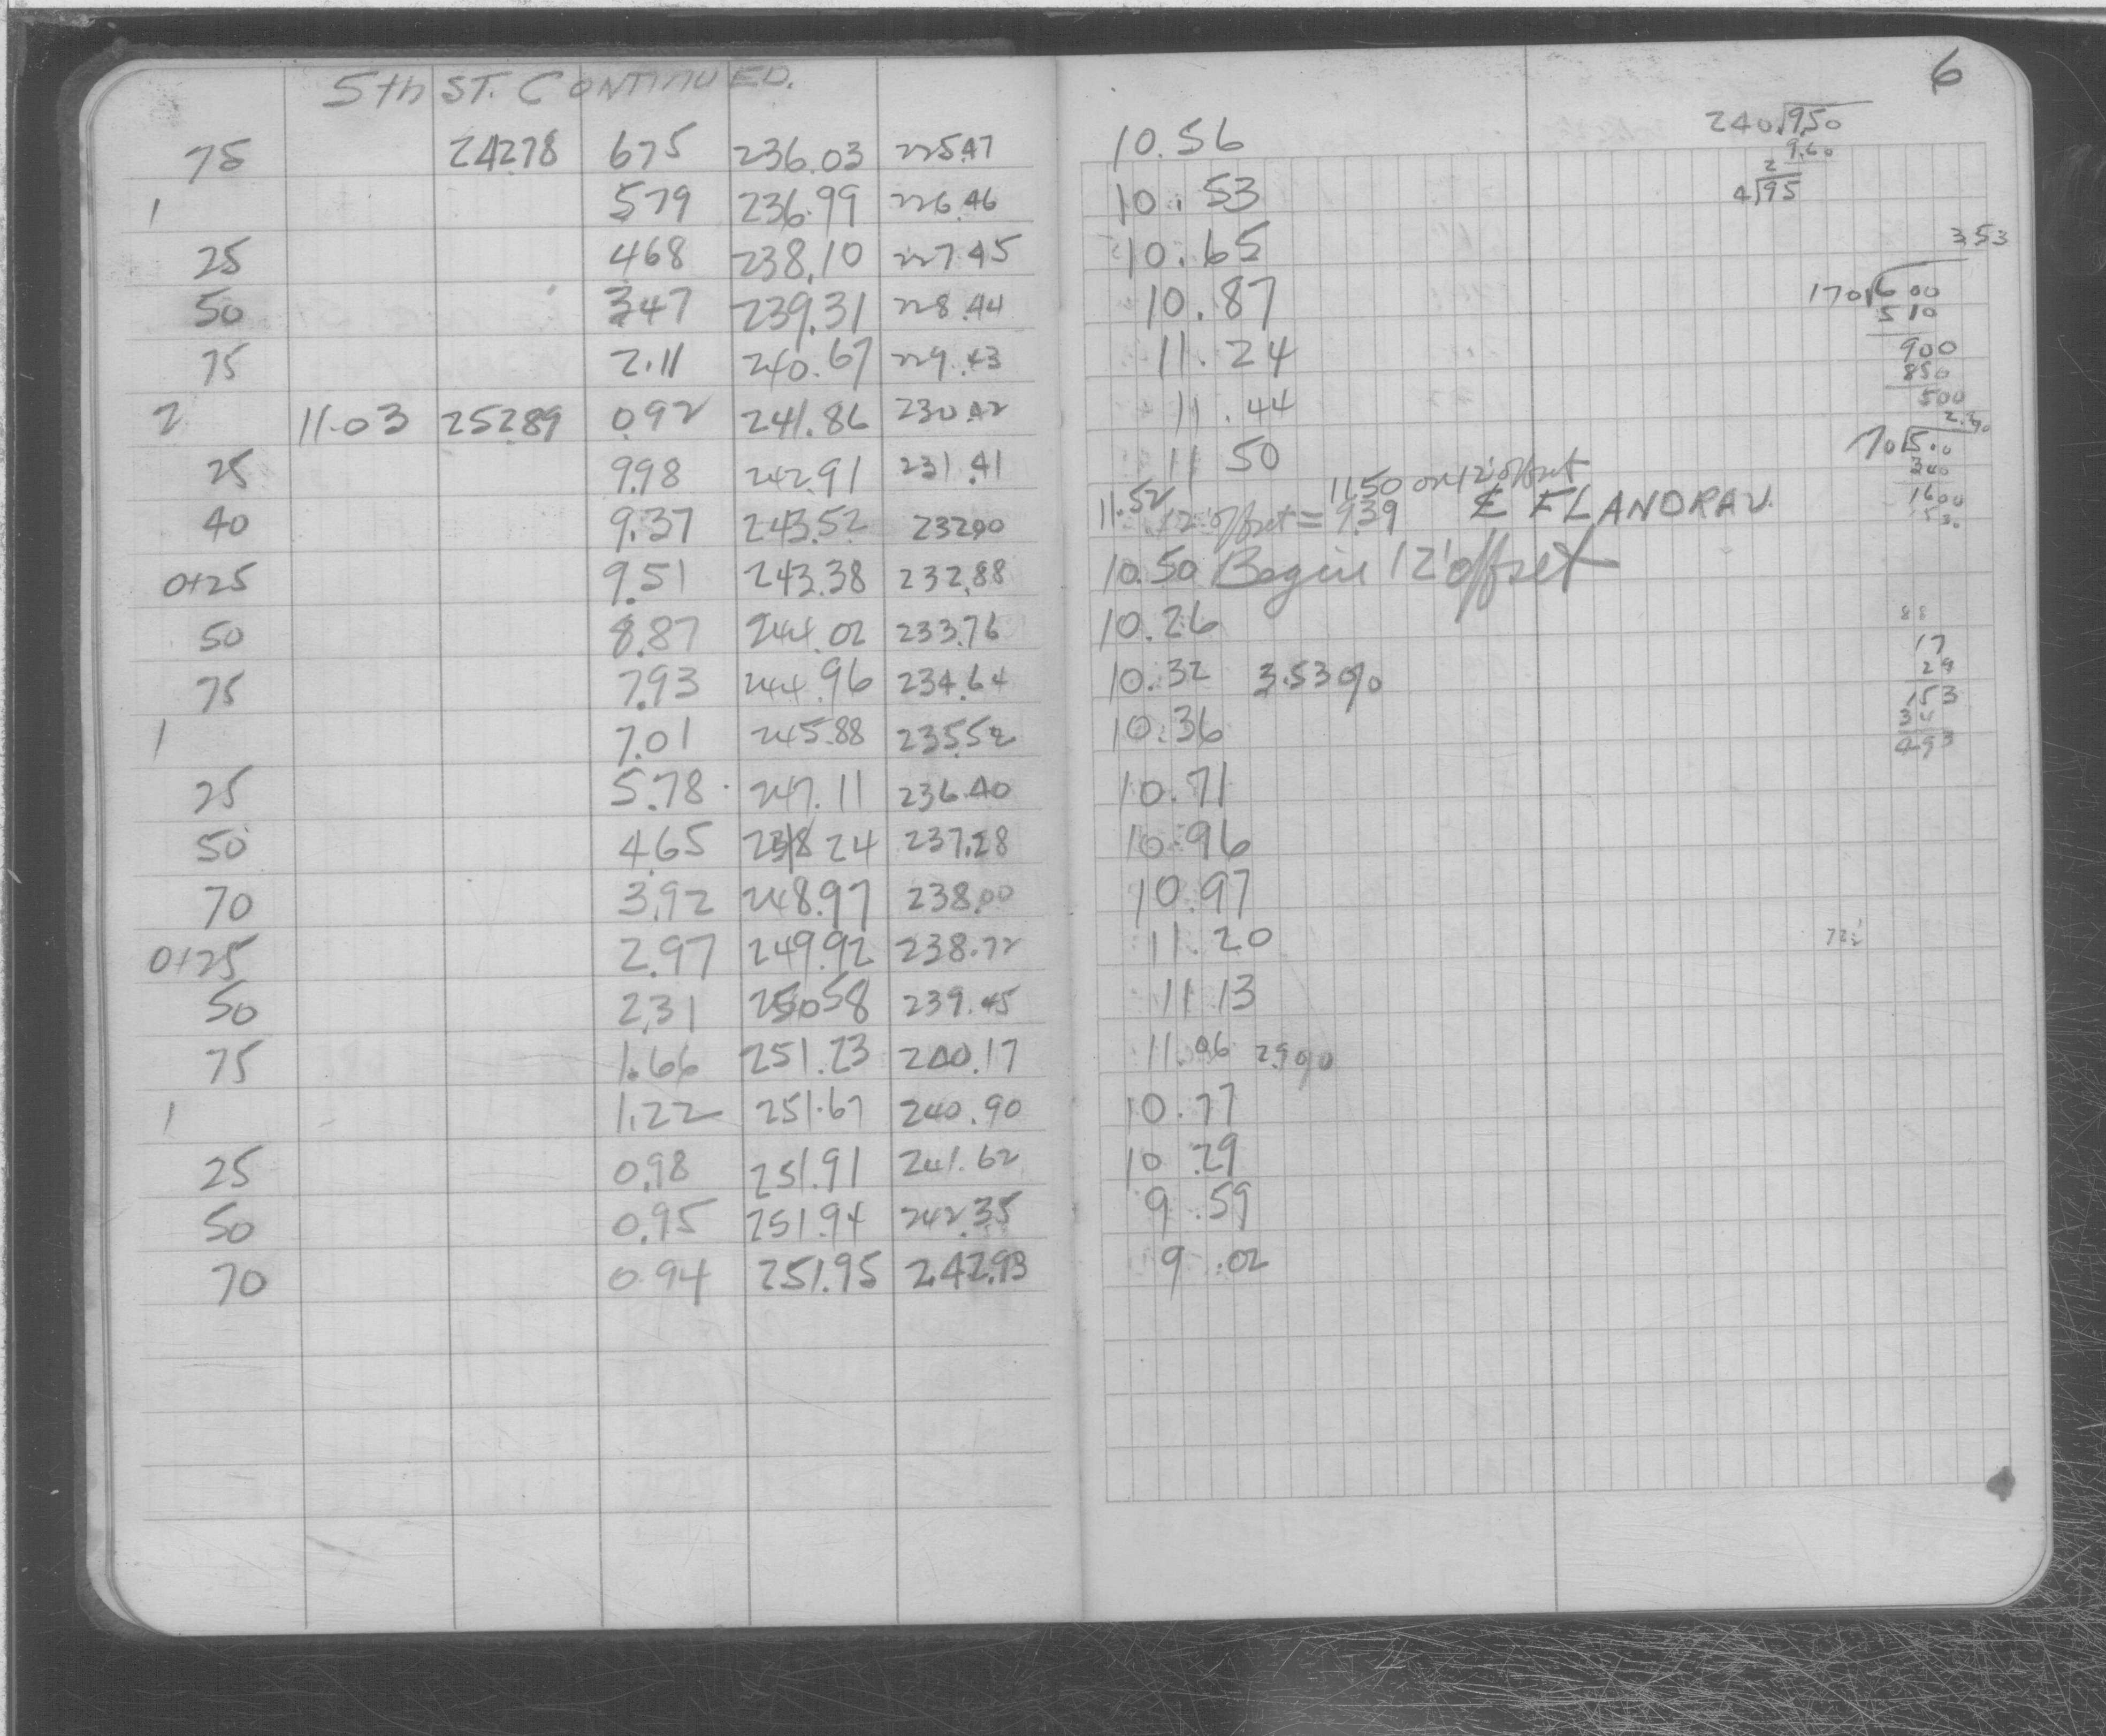 6
5th ST. CONTINUED.
75 242.78 6.75 236.03 225.47 10.56
1 5.79 236.99 226.46 10.53
25 4.68 238.10 227.45 10.65
50 3.47 239.31 228.44 10.87
75 2.11 240.67 229.43 11.24
2 11.03 252.89 0.92 241.86 230.42 11.44
25 9.98 242.91 231.41 11 50
11.50 on 12' offset
40 9.37 243.52 232.00 11.52 12' offset = 9.39 ℄ FLANDRAU.
0+25 9.51 243.38 232.88 10.50 Begin 12' offset
50 8.87 244.02 233.76 10.26
75 7.93 244.96 234.64 10.32 3.53%
1 7.01 245.88 235.52 10.36
25 5.78 247.11 236.40 10.71
50 4.65 248 24 237.28 10.96
70 3.92 248.97 238.00 10.97
0+25 2.97 249.92 238.72 11.20
50 2.31 250.58 239.45 11.13
75 1.66 251.23 240.17 11.06 2.9%
1 1.22 251.67 240.90 10.77
25 0.98 251.91 241.62 10.29
50 0.95 251.94 242.35 9.59
70 0.94 251.95 242.93 9.02
240 950
9.60
2
4 95
3.53
170 600
510
900
850
500
340
1600
1530
88
17
29
153
34
493